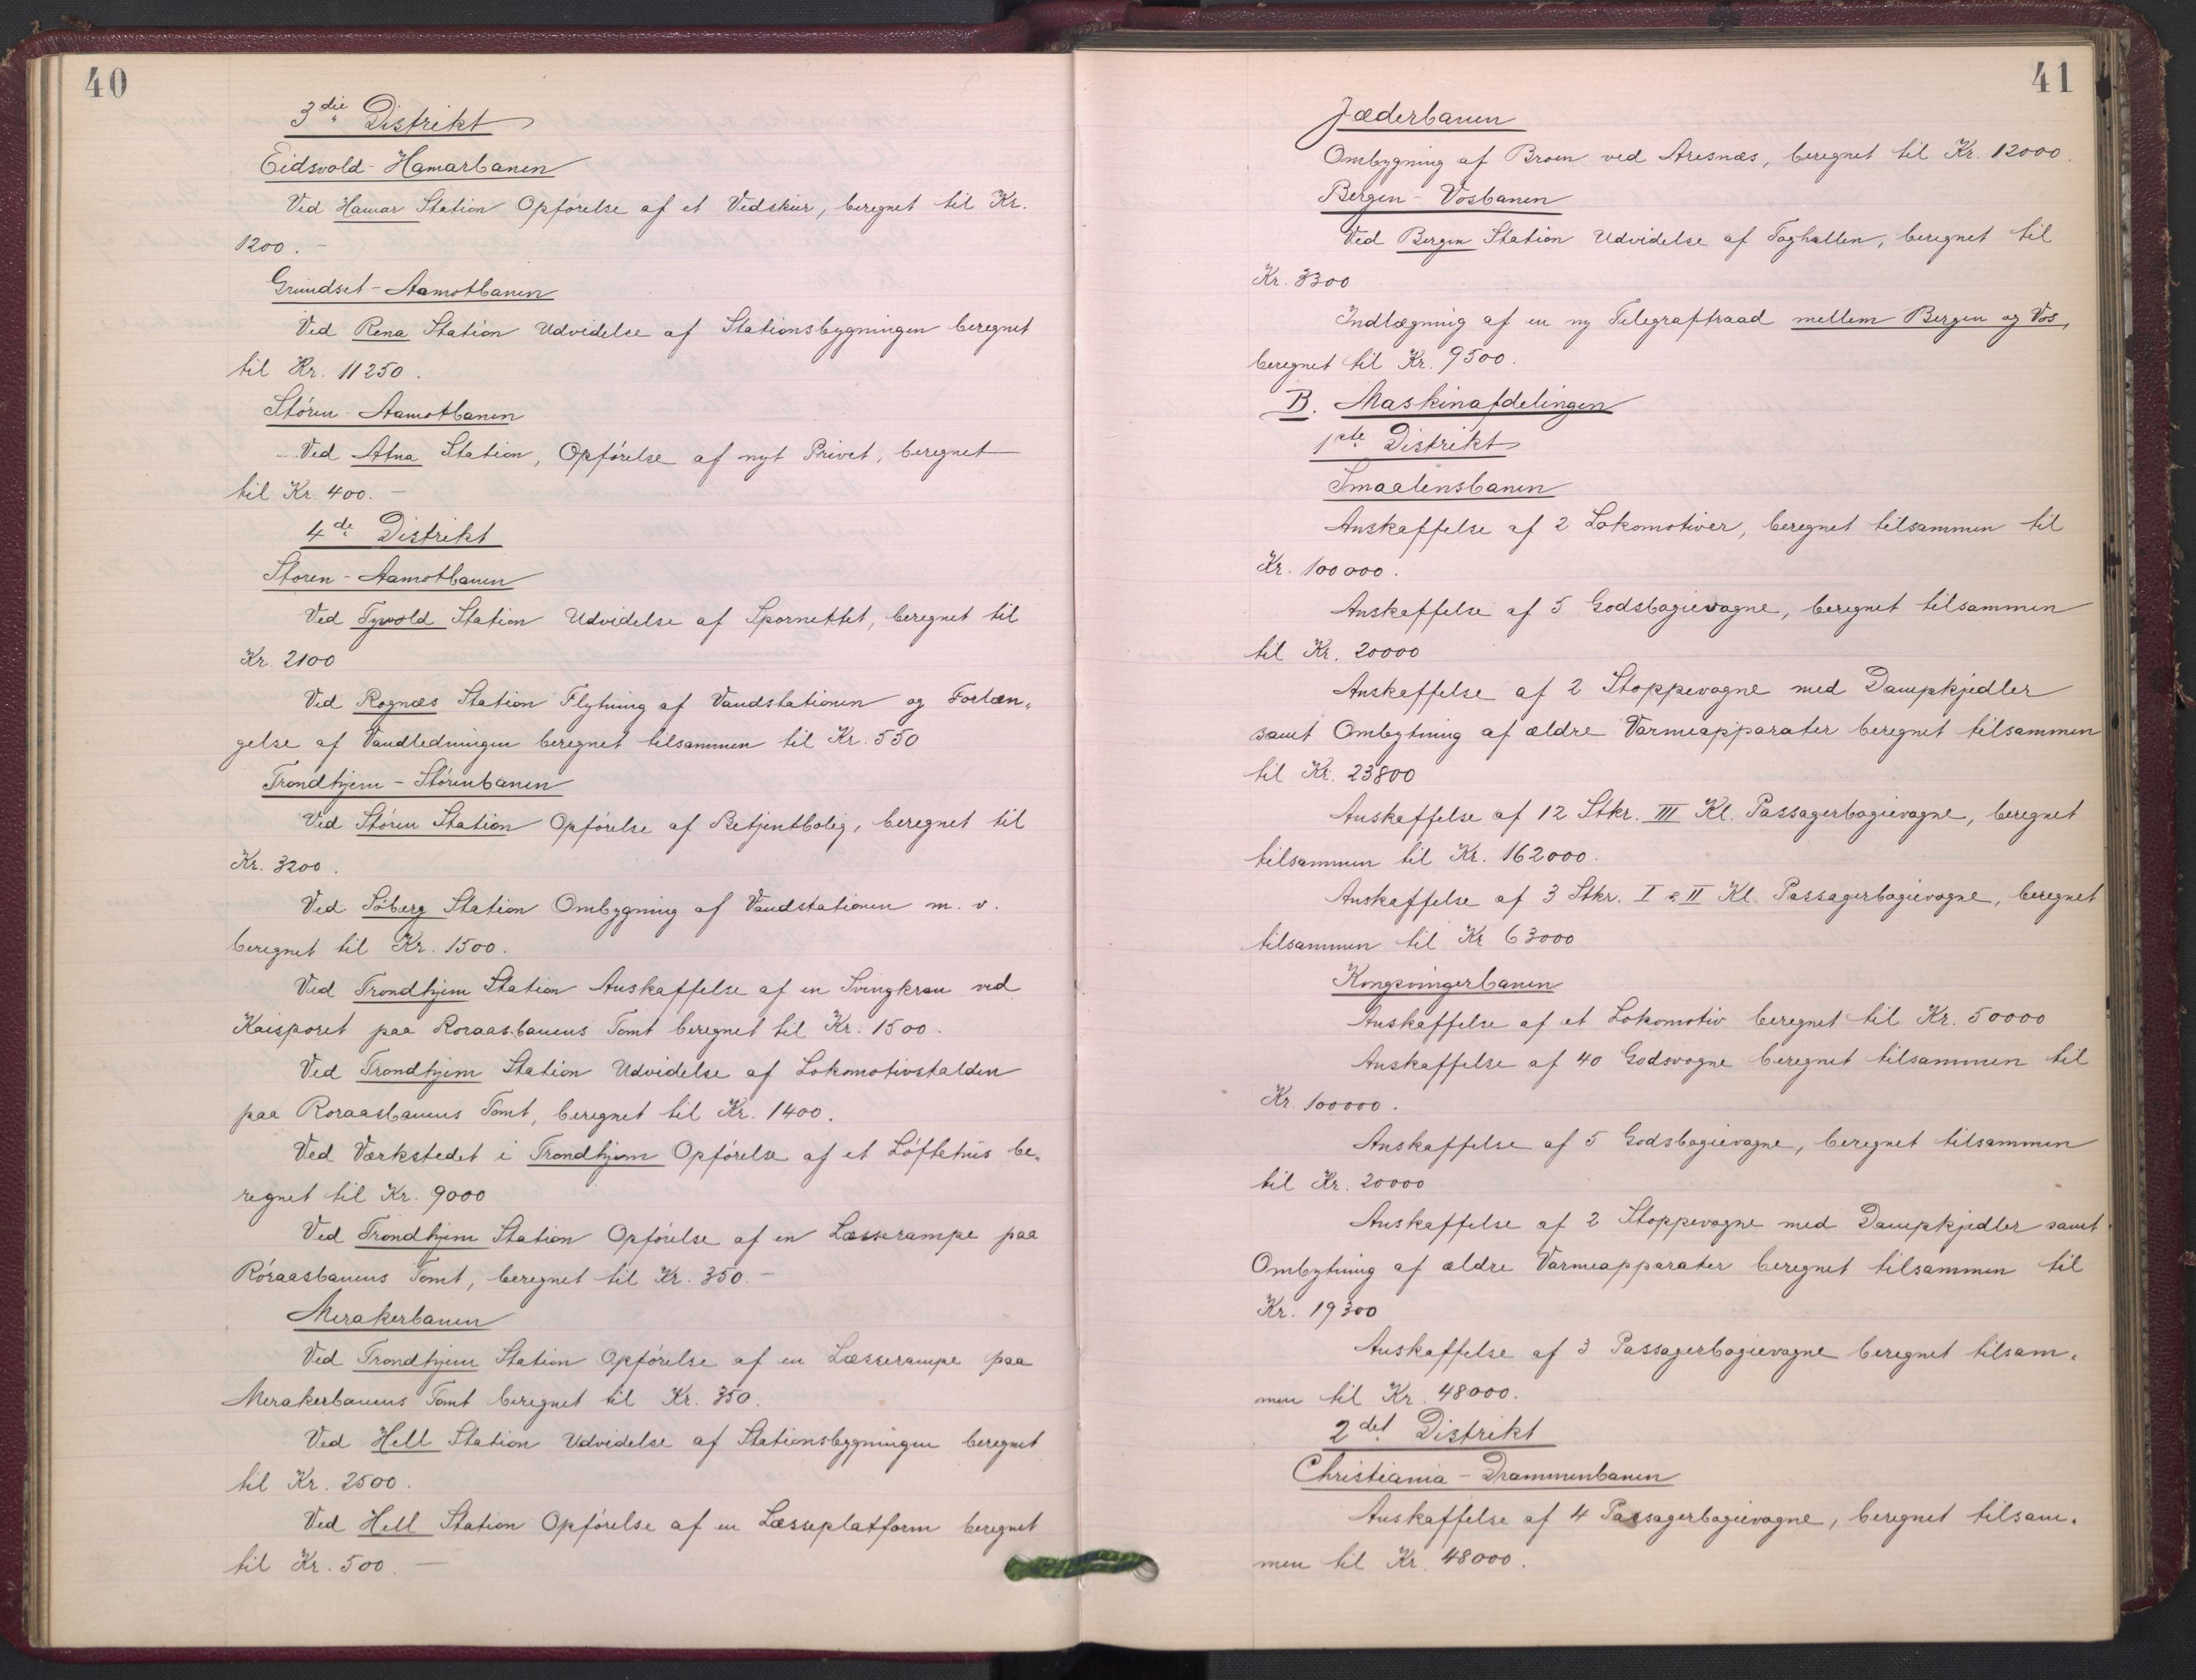 40
3die Distrikt
Eidsvold-Hamarbanen
Ved Hamar Station Opførelse af et Vedskur, beregnet til Kr.
1200.-
Grundset-Aamotbanen
Ved Rena Station Udvidelse af Stationsbygningen beregnet
til Kr. 11250.
Støren-Aamotbanen
Ved Atna Station, Opførelse af nyt Privet, beregnet
til Kr. 400.-
4de Distrikt
Støren-Aamotbanen
Ved Tyvold Station Udvidelse af Spornettet, beregnet til
Kr. 2100
Ved Rognæs Station Flytning af Vandstationen og Forlæn-
gelse af Vandledningen beregnet tilsammen til Kr. 550
Trondhjem-Størenbanen
Ved Støren Station Opførelse af Betjentbolig, beregnet til
Kr. 3200.
Ved Søberg Station Ombygning af Vandstationen m. v.
beregnet til Kr. 1500.
Ved Trondhjem Station Anskaffelse af en Svingkran ved
Kaisporet paa Roraasbanens Tomt beregnet til Kr. 1500.
Ved Trondhjem Station Udvidelse af Lokomotivstalden
paa Roraasbanens Tomt, beregnet til Kr. 1400.
Ved Værkstedet i Trondhjem Opførelse af et Løftehus be-
regnet til Kr. 9000
Ved Trondhjem Station Opførelse af en Læsserampe paa
Røraasbanens Tomt, beregnet til Kr. 350.-
Merakerbanen
Ved Trondhjem Station Opførelse af en Læsserampe paa
Merakerbanens Tomt beregnet til Kr. 350.
Ved Hell Station Udvidelse af Stationsbygningen beregnet
til Kr. 2500.
Ved Hell Station Opførelse af en Læsseplatform beregnet
til Kr. 500.-
41
Jæderbanen
Ombygning af Broen ved Aresnæs, beregnet til Kr. 12000.
Bergen-Vosbanen
Ved Bergen Station Udvidelse af Toghallen, beregnet til
Kr. 3300
Indlægning af en ny Telegraftraad mellem Bergen og Vos,
beregnet til Kr. 9500.
B. Maskinafdelingen
1ste Distrikt
Smaalensbanen
Anskaffelse af 2 Lokomotiver, beregnet tilsammen til
Kr. 100000.
Anskaffelse af 5 Godsbogievogne, beregnet tilsammen
til Kr. 20000
Anskaffelse af 2 Stoppevogne med Dampkjedler
samt Ombytning af ældre Varmeapparater beregnet tilsammen
til Kr. 23800
Anskaffelse af 12 Stkr. III Kl. Passagerbogievogne, beregnet
tilsammen til Kr. 162000.
Anskaffelse af 3 Stkr. I & II Kl. Passagerbogievogne, beregnet
tilsammen til Kr 63000
Kongsvingerbanen
Anskaffelse af et Lokomotiv beregnet til Kr. 50000
Anskaffelse af 40 Godsvogne beregnet tilsammen til
Kr. 100000.
Anskaffelse af 5 Godsbogievogne, beregnet tilsammen
til Kr. 20000
Anskaffelse af 2 Stoppevogne med Dampkjedler samt
Ombytning af ældre Varmeapparater beregnet tilsammen til
Kr. 19300
Anskaffelse af 3 Passagerbogievogne beregnet tilsam-
men til Kr. 48000.
2det Distrikt
Christiania-Drammenbanen
Anskaffelse af 4 Passagerbogievogne, beregnet tilsam-
men til Kr. 48000.